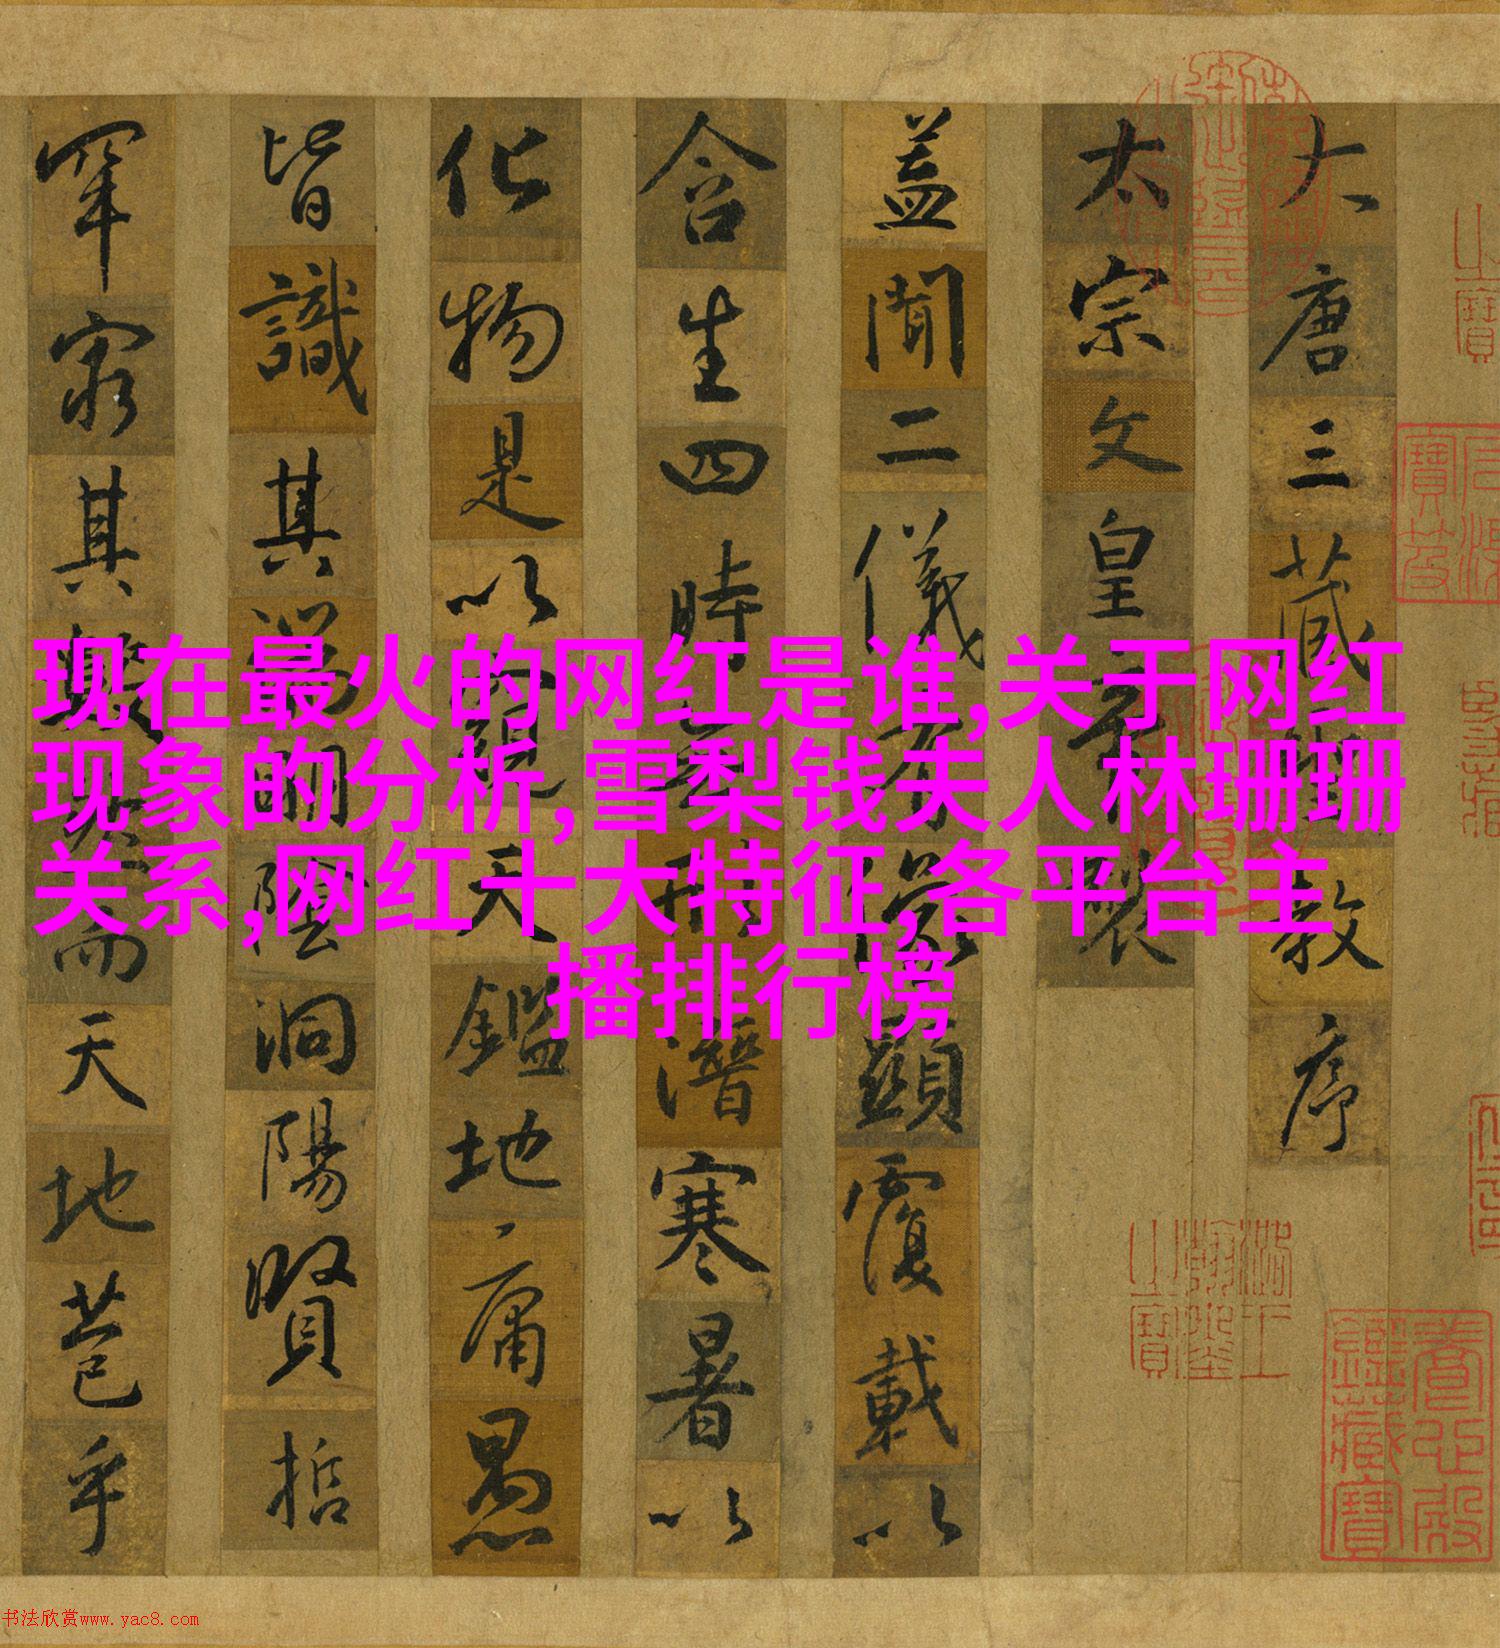 大唐三藏聖教序
太宗文皇帝製
蓋聞二儀有像顯覆載以
含生四時無形潛寒暑以
化物是以窺天鑑地庸愚
皆識其端明陰洞陽賢哲
罕窮其數然而天地苞乎
现在最火的网红是谁,关于网红
现象的分析,雪梨钱夫人林珊珊
关系,网红十大特征,各平台主
播排行榜
石渠
寶笈
養心殿
鑑藏寶
书法欣赏www.yac8.com